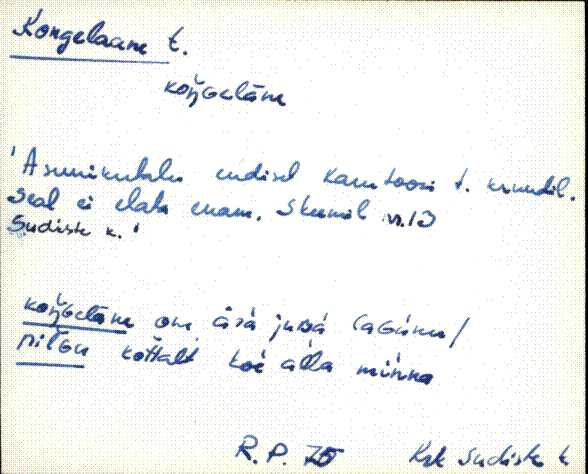 Kongelaane t.
koŋ̆Gelāne
'Asunikutalu endisel Kantoosi t. krundil.
Seal ei elata enam. Skeemil nr. 13
Sudiste k.'
koŋ̆Gelāne om ärä juвa laGünu/
pilGu kottalt koe alla minna
R. P. 75 Krk Sudiste k